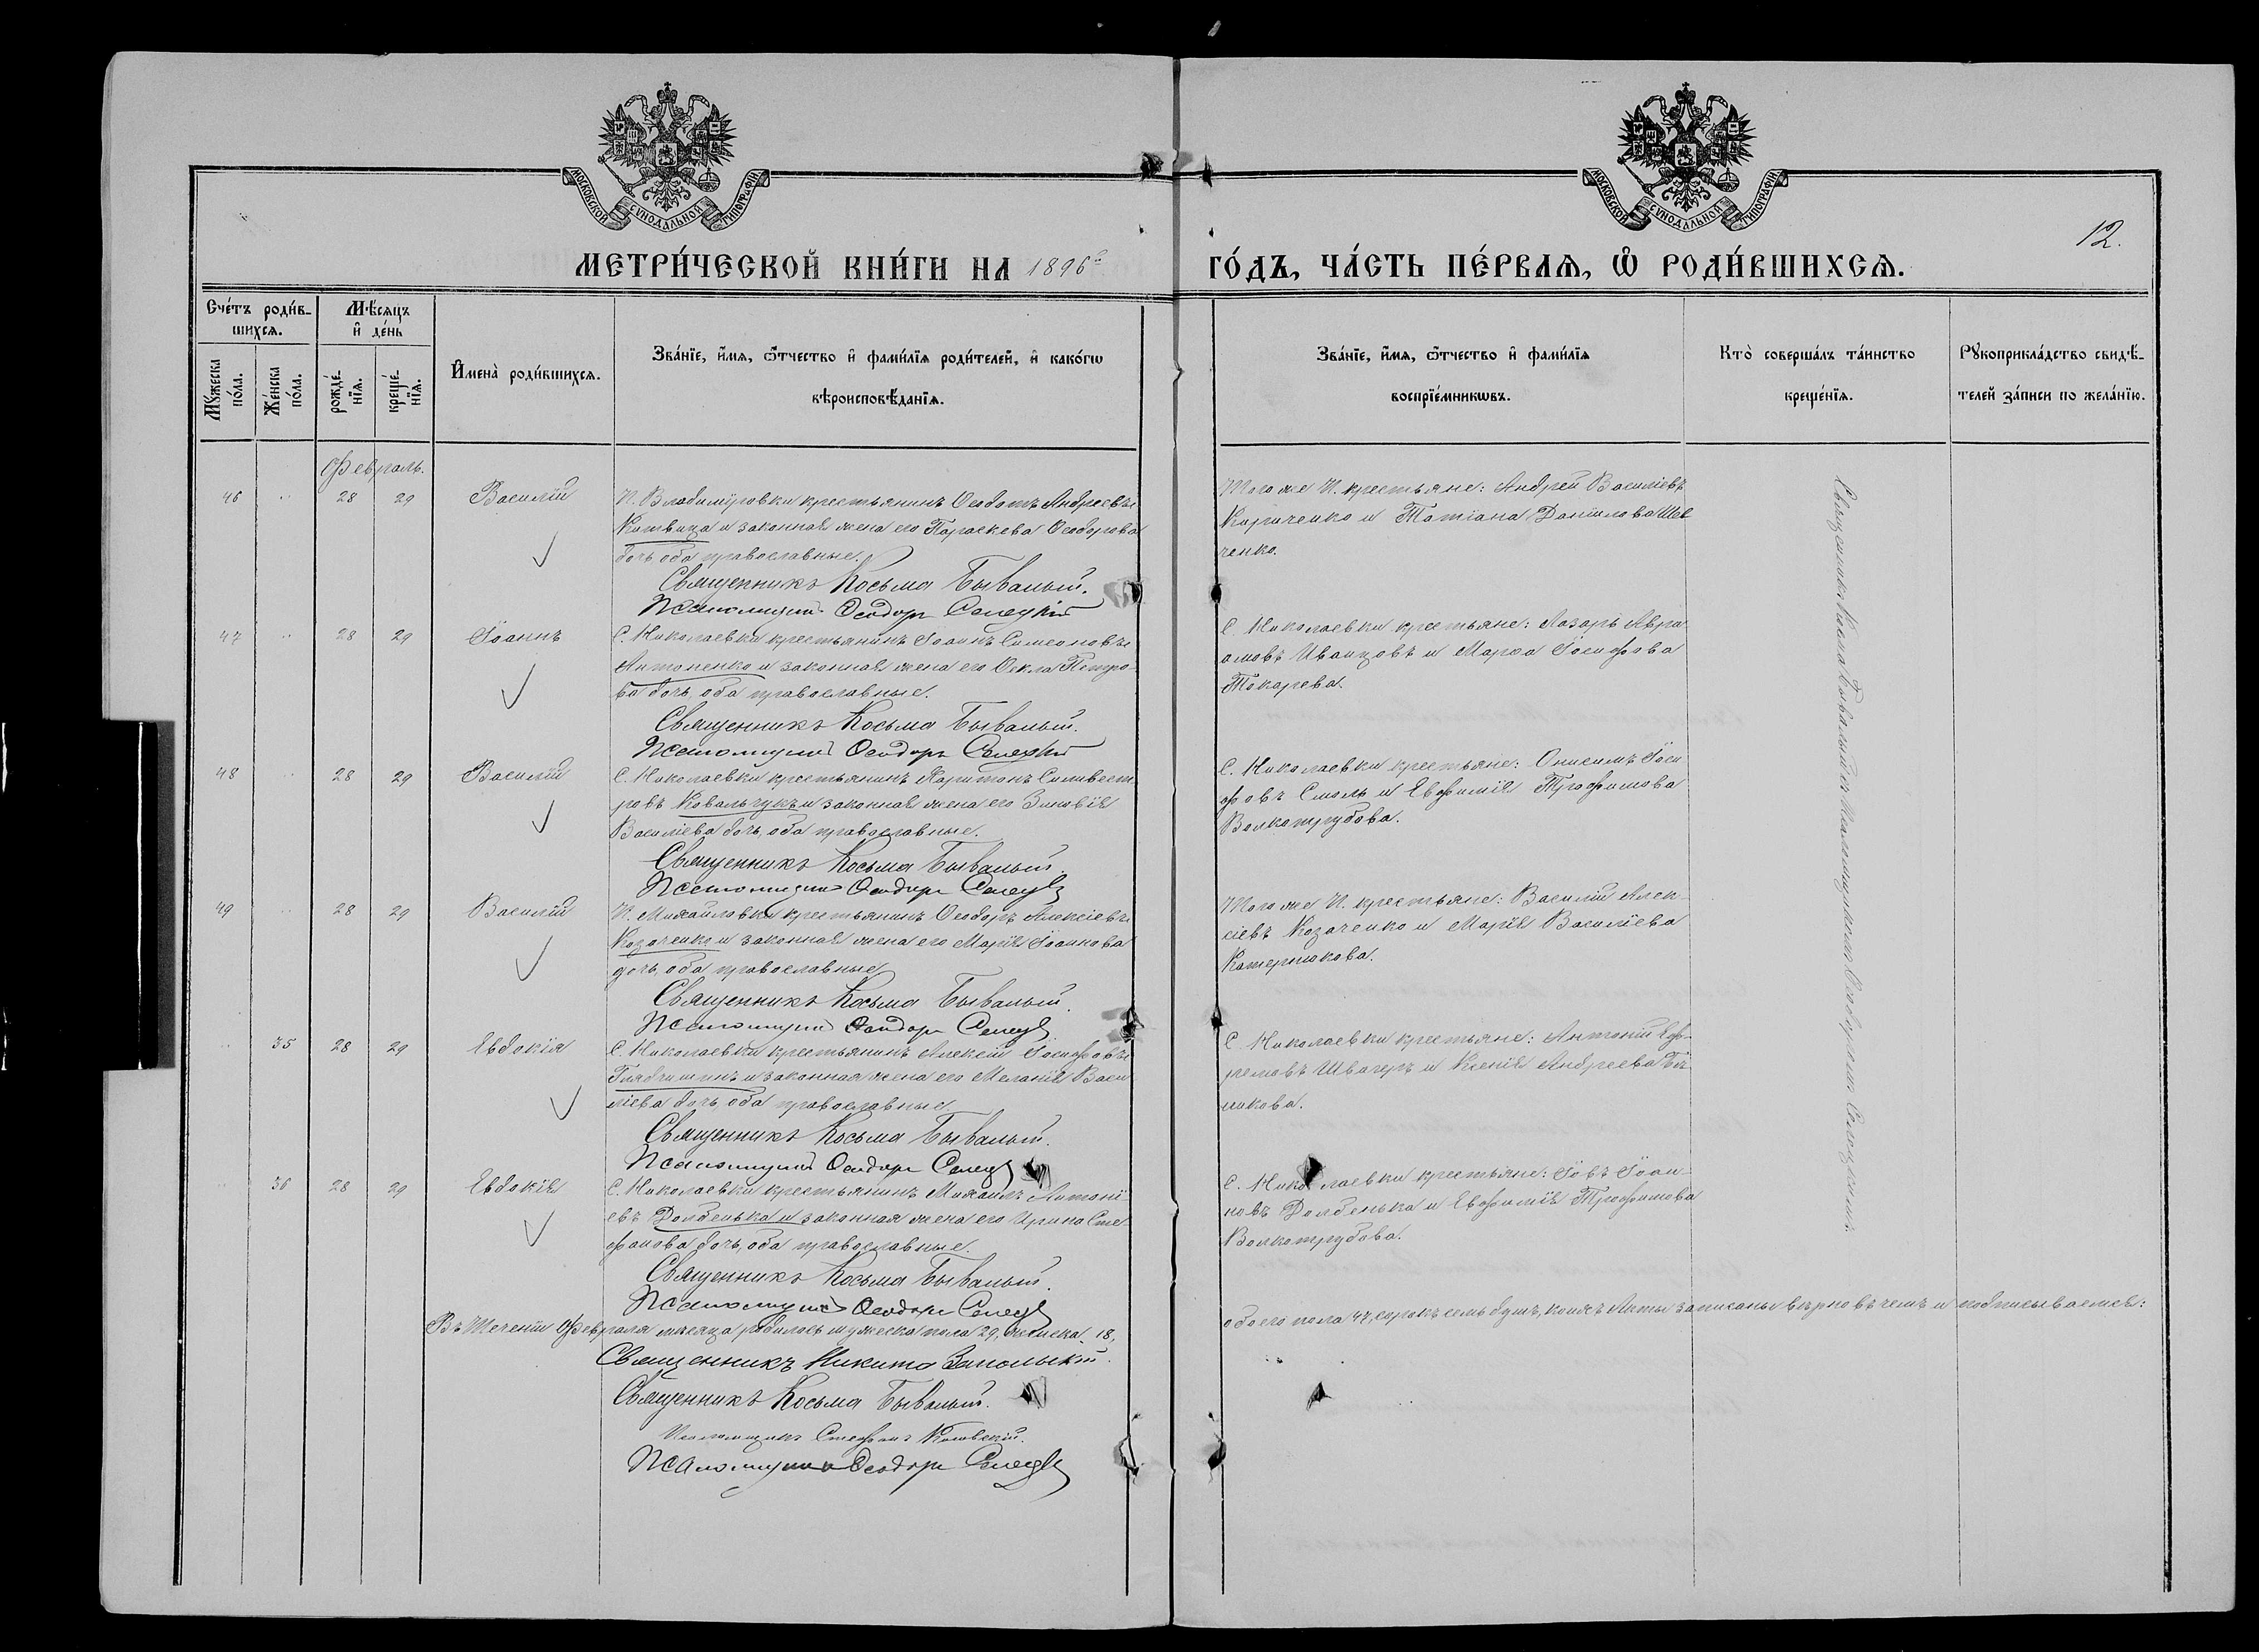 МОСКОВСКОЙ СѴНОДАЛЬНОЙ ТИПОГРАФІИ
МОСКОВСКОЙ СѴНОДАЛЬНОЙ ТИПОГРАФІИ
12.
МЕТРИ́ЧЕСКОЙ КНИ́ГИ НА 1896г. ГО́ДЪ, ЧА́СТЬ ПЕ́РВАѦ, Ѽ РОДИ́ВШИХСѦ.
Сче́тъ роди́в-
шихсѧ.
Мꙋ́жеска
по́ла.
Же́нска
по́ла.
Мѣ́сѧцъ
и҆ де́нь
рожде́-
нїѧ.
креще́-
нїѧ.
И҆мена̀ роди́вшихсѧ.
Зва́нїе, и҆́мѧ, ѻ҆́тчество и҆ фами́лїѧ роди́телей, и҆ како́гѡ
вѣроисповѣ́данїѧ.
Зва́нїе, и҆́мѧ, ѻ҆́тчество и҆ фами́лїѧ
воспрїе́мникѡвъ.
Кто̀ соверша́лъ та́инство
креще́нїѧ.
Рꙋкоприкла́дство свидѣ́-
телей за́писи по жела́нїю.
Февраль.
46 " 28 29 Василій
П. Владиміровки крестьянинъ Ѳеодотъ Андреевъ
Китвица и законная жена его Параскева Ѳеодорова
дочь, оба православные.
Священникъ Косьма Бывалый.
Псаломщикъ Ѳеодоръ Селецкій
Того же П. крестьяне: Андрей Василіевъ
Кириченко и Татіана Даніилова Шев
ченко.
47 " 28 29 Іоаннъ
С. Николаевки крестьянинъ Іоаннъ Симеоновъ
Антоненко и законная жена его Ѳекла Петро-
ва дочь, оба православные.
Священникъ Косьма Бывалый.
Псаломщикъ Ѳеодоръ Селецкій
С. Николаевки крестьяне: Лазарь Авра
амовъ Иванцовъ и Марѳа Іосифова
Токарева.
48 " 28 29 Василій
С. Николаевки крестьянинъ Харитонъ Сильвест
ровъ Ковальчукъ и законная жена его Зиновія
Василіева дочь, оба православные.
Священникъ Косьма Бывалый.
Псаломщикъ Ѳеодоръ Селец
С. Николаевки крестьяне: Онисимъ Іоси
фовъ Смоль и Евфимія Трофимова
Волкотрубова.
49 " 28 29 Василій
П. Михайловки крестьянинъ Ѳеодоръ Алексіевъ
Козаченко и законная жена его Марія Іоаннова
дочь, оба православные
Священникъ Косьма Бывалый.
Псаломщикъ Ѳеодоръ Селец
Того же П. крестьяне: Василій Алек-
сіевъ Козаченко и Марія Василіева
Катержокова.
" 35 28 29 Евдокія
С. Николаевки крестьянинъ Алексій Іосифовъ
и законная жена его Меланія Васи
ліева дочь, оба православные
Священникъ Косьма Бывалый.
Псаломщикъ Ѳеодоръ Селец
С. Николаевки крестьяне: Антоній Еф-
ремовъ Швачеръ и Ксенія Андреева
никова.
" 36 28 29 Евдокія
С. Николаевки крестьянинъ Михаилъ Антоні
евъ Долбенька и законная жена его Ирина Сте
фанова дочь, оба православные.
Священникъ Косьма Бывалый.
Псаломщикъ Ѳеодоръ Селец
С. Николаевки крестьяне: Іовъ Іоан
новъ Долбенька и Евфимія Трофимова
Волкотрубова.
Священникъ Косьма Бывалый съ Псаломщикомъ Ѳеодоромъ Селецкимъ.
Въ теченіи Февраля мѣсяца родилось мужеска пола 29, женска 18, обоего пола 47, сорокъ семь душъ, коихъ Акты записаны вѣрно въ чемъ и подписываемся:
Священникъ Никита Запольскій.
Священникъ Косьма Бывалый.
Псаломщикъ Стефанъ
Псаломщикъ Ѳеодоръ Селец